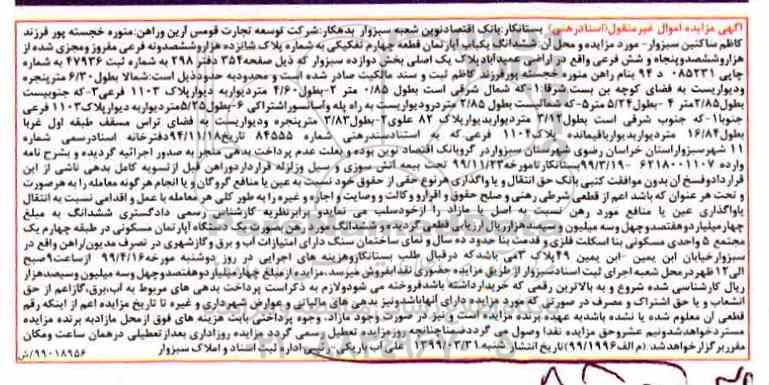 آگهی مزایده اموال غیرمنقول(اسنادرهنی) بستانکار:بانک اقتصادنوین شعبه سبزوار بدهکار:شرکت توسعه تجارت قومس آرین وراهن:منوره خجسته پور فرزند
کاظم ساکنین سبزوار- مورد مزایده و محل آن: ششدانگ یکباب آپارتمان قطعه چهارم تفکیکی به شماره پلاک شانزده هزاروششصدونه فرعی مفروز ومجزی شده از
هزاروششصدوپنجاه و شش فرعی واقع در اراضی عمیدآبادپلاک یک اصلی بخش دوازده سبزوار که ذیل صفحه۳۵۴ دفتر ۲۹۸ به شماره ثبت ۴۷۹۳۶ به شماره
چاپی ۰۸۵۲۳۱ د ۹۴ بنام راهن منوره خجسته پورفرزند کاظم ثبت و سند مالکیت صادر شده است و محدودبه حدودذیل است:شمالا بطول ۶/۳۰ مترپنجره
ودیواریست به فضای کوچه بن بست.شرقا:۱-که شمال شرقی است بطول ۰/۸۵ متر ۲-بطول ۴/۶۰ متردیواربه دیوارپلاک ۱۱۰۳ فرعی۳-که جنوبیست
بطول۲/۸۵متر ۴-بطول۵/۲۴ متر۵-که شمالیست بطول ۲/۸۵ متردرودیواریست به راه پله وآسانسوراشتراکی ۶-بطول۵/۲۵متردیواربه دیوارپلاک۱۱۰۳ فرعی
جنوبا۱-که جنوب شرقی است بطول۳/۱۲ متردیواربدیوارپلاک ۸۲ علوی۲-بطول۳/۸۳ مترپنجره ودیواریست به فضای تراس مسقف طبقه اول غربا
بطول۱۶/۸۴ متردیواربدیوارباقیمانده پلاک۱۱۰۴ فرعی.که به استنادسندرهنی شماره ۸۴۵۵۵ تاریخ۹۴/۱۱/۱۸دفترخانه اسنادرسمی شماره
۱۱ شهرسبزواراستان خراسان رضوی شهرستان سبزواردر گروبانک اقتصاد نوین بوده وبعلت عدم پرداخت بدهی منجر به صدور اجرائیه گردیده و بشرح نامه
وارده ۶۲۱۸۰۰۱۱۰۷ -۹۹/۳/۱۹بستانکارتامورخه۹۹/۱۱/۲۳ تحت بیمه آتش سوزی و سیل وزلزله قرارداردوراهن قبل ازتسویه کامل بدهی ناشی از این
قراردادوفسخ آن بدون موافقت کتبی بانک حق انتقال و یا واگذاری هرنوع حقی از حقوق خود نسبت به عین یا منافع گروگان و یا انجام هر گونه معامله را به هرصورت
و تحت هر عنوان که باشد اعم از قطعی شرطی رهنی و صلح حقوق و اقرارو وکالت و وصایت و اجاره و غیره را به طور کلی هر معامله با عمل و اقدامی نسبت به انتقال
یاواگذاری عین یا منافع مورد رهن نسبت به اصل یا مازاد را ازخودسلب می نمایدو برابرنظریه کارشناس رسمی دادگستری ششدانگ به مبلغ
چهارمیلیاردوهفتصدوچهل وسه میلیون وسیصدهزارریال ارزیابی قطعی گردیده و ششدانگ مورد رهن بصورت یک دستگاه آپارتمان مسکونی در طبقه چهارم یک
مجتمع ۵ واحدی مسکونی بنا اسکلت فلزی و قدمت بنا حدود ده سال و نمای ساختمان سنگ دارای امتیازات آب و برق وگازشهری در تصرف مدیون/راهن واقع در
سبزوارخیابان ابن یمین -ابن یمین ۴۹پلاک ۳می باشدکه درقبال طلب بستانکاروهزینه های اجرایی در روز دوشنبه مورخه۹۹/۴/۱۶ ازساعت۹صبح
الی۱۲ظهردرمحل شعبه اجرای ثبت اسنادسبزوار از طریق مزایده حضوری نقدابفروش میرسد.مزایده ازمبلغ چهارمیلیاردوهفتصدوچهل وسه میلیون وسیصدهزار
ریال کارشناسی شده شروع و به بالاترین رقمی که خریدارداشته باشدفروخته می شودولازم به ذکراست پرداخت بدهی های مربوط به آب،برق،گازاعم از حق
انشعاب و یا حق اشتراک و مصرف در صورتی که مورد مزایده دارای آنهاباشدونیز بدهی های مالیاتی و عوارض شهرداری و غیره تا تاریخ مزایده اعم از اینکه رقم
قطعی آن معلوم شده یا نشده باشدبه عهده برنده مزایده است و نیز در صورت وجود مازاد، وجوه پرداختی بابت هزینه های فوق ازمحل مازادبه برنده مزایده
مستردخواهدشدونیم عشروحق مزایده نقدا وصول می گرددضمناچنانچه روزمزایده تعطیل رسمی گردد مزایده روزاداری بعدازتعطیلی درهمان ساعت ومکان
مقرربرگزارخواهدشد.(م الف۹۹/۱۹۹۶)تاریخ انتشار:شنبه ۱۳۹۹/۰۳/۳۱ علی آب باریکی-رئیس اداره ثبت اسناد و املاک سبزوار ۹۹۰۱۸۹۵۶/ش